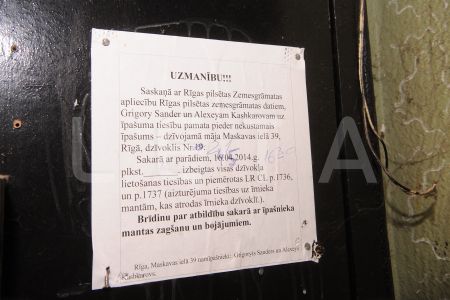 UZMANĪBU!!!
Saskaņā ar Rīgas pilsētas Zemesgrāmatas
apliecību Rīgas pilsētas zemesgrāmatas datiem,
Grigory Sander un Alexeyam Kashkarovam uz
īpašuma tiesību pamata pieder nekustamais
īpašums – dzīvojamā māja Maskavas ielā 39,
Rīgā, dzīvoklis Nr.
Sakarā ar parādiem, 16.04.2014.g.
plkst. izbeigtas visas dzīvokļa
lietošanas tiesības un piemērotas LR CL p.1736,
un p.1737 (aizturējuma tiesības uz īrnieka
mantām, kas atrodas īrnieka dzīvoklī.).
Brīdinu par atbildību sakarā ar īpašnieka
mantas zagšanu un bojājumiem.
Rīga, Maskavas ielā 39 namīpašnieki: Grigorijs Sanders un Alexey
Kashkarovs.